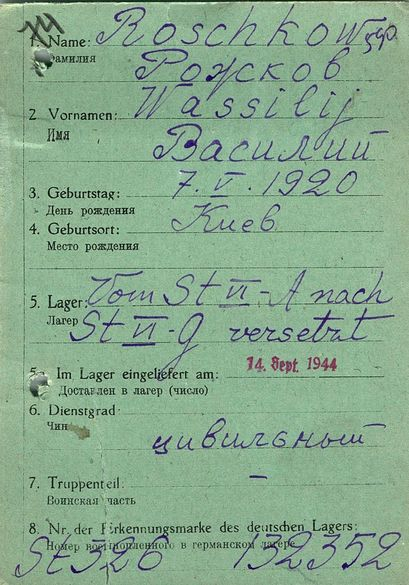 74
1. Name: Roschkow
Фамилия
Рожков
2 Vornamen: Wassilij
Имя
Василий
3. Geburtstag: 7. V. 1920
День рождения
4. Geburtsort: Киев
Место рождения
5. Lager: Vom St VI-A nach
Лагерь St VI-G versetzt
5. Im Lager eingeliefert am: 14. Sept. 1944
Доставлен в лагерь (число)
6. Dienstgrad:
Чин
цивильный
7. Truppenteil: –
Воинская часть
8. Nr. der Erkennungsmarke des deutschen Lagers:
Номер военнопленного в германском лагере
St 326 132352